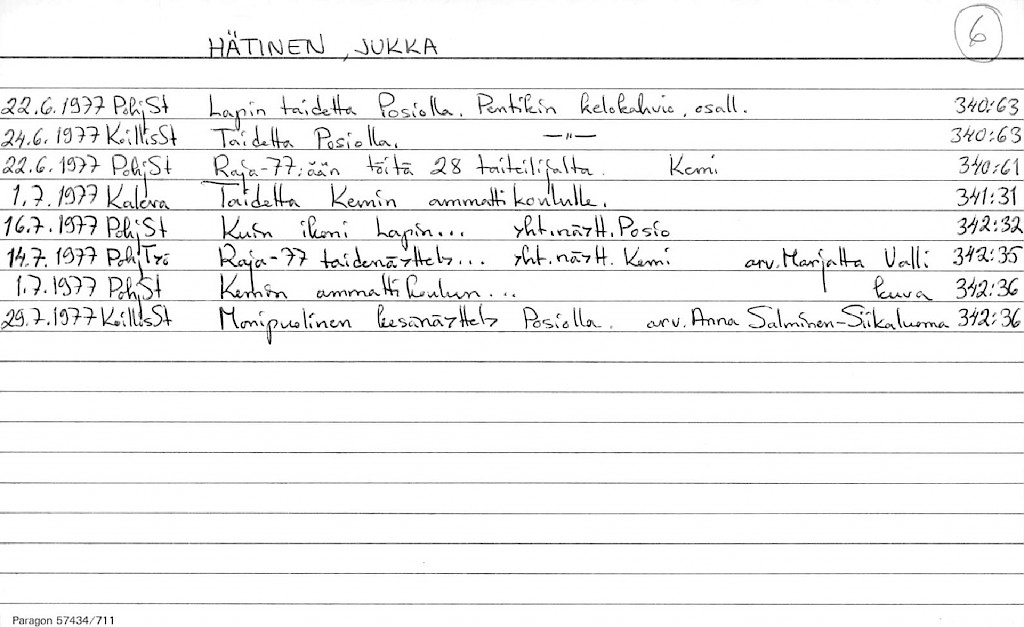 HÄTINEN, JUKKA
6
22.6.1977 PohjSt Lapin taidetta Posiolla. Pentikin kelokahvio, osall. 340:63
24.6.1977 KoillisSt Taidetta Posiolla. —"— 340:63
22.6.1977 PohjSt Raja-77:ään töitä 28 taiteilijalta. Kemi 340:61
1.7.1977 Kaleva Taidetta Kemin ammattikoululle. 341:31
16.7.1977 PohjSt Kuin ikoni Lapin... yht.näytt. Posio 342:32
14.7.1977 PohjTyö Raja-77 taidenäyttely... yht.näytt. Kemi arv. Marjatta Valli 342:35
1.7.1977 PohjSt Kemin ammattikoulun... kuva 342:36
29.7.1977 KoillisSt Monipuolinen kesänäyttely Posiolla. arv. Anna Salminen-Siikaluoma 342:36
Paragon 57434/711